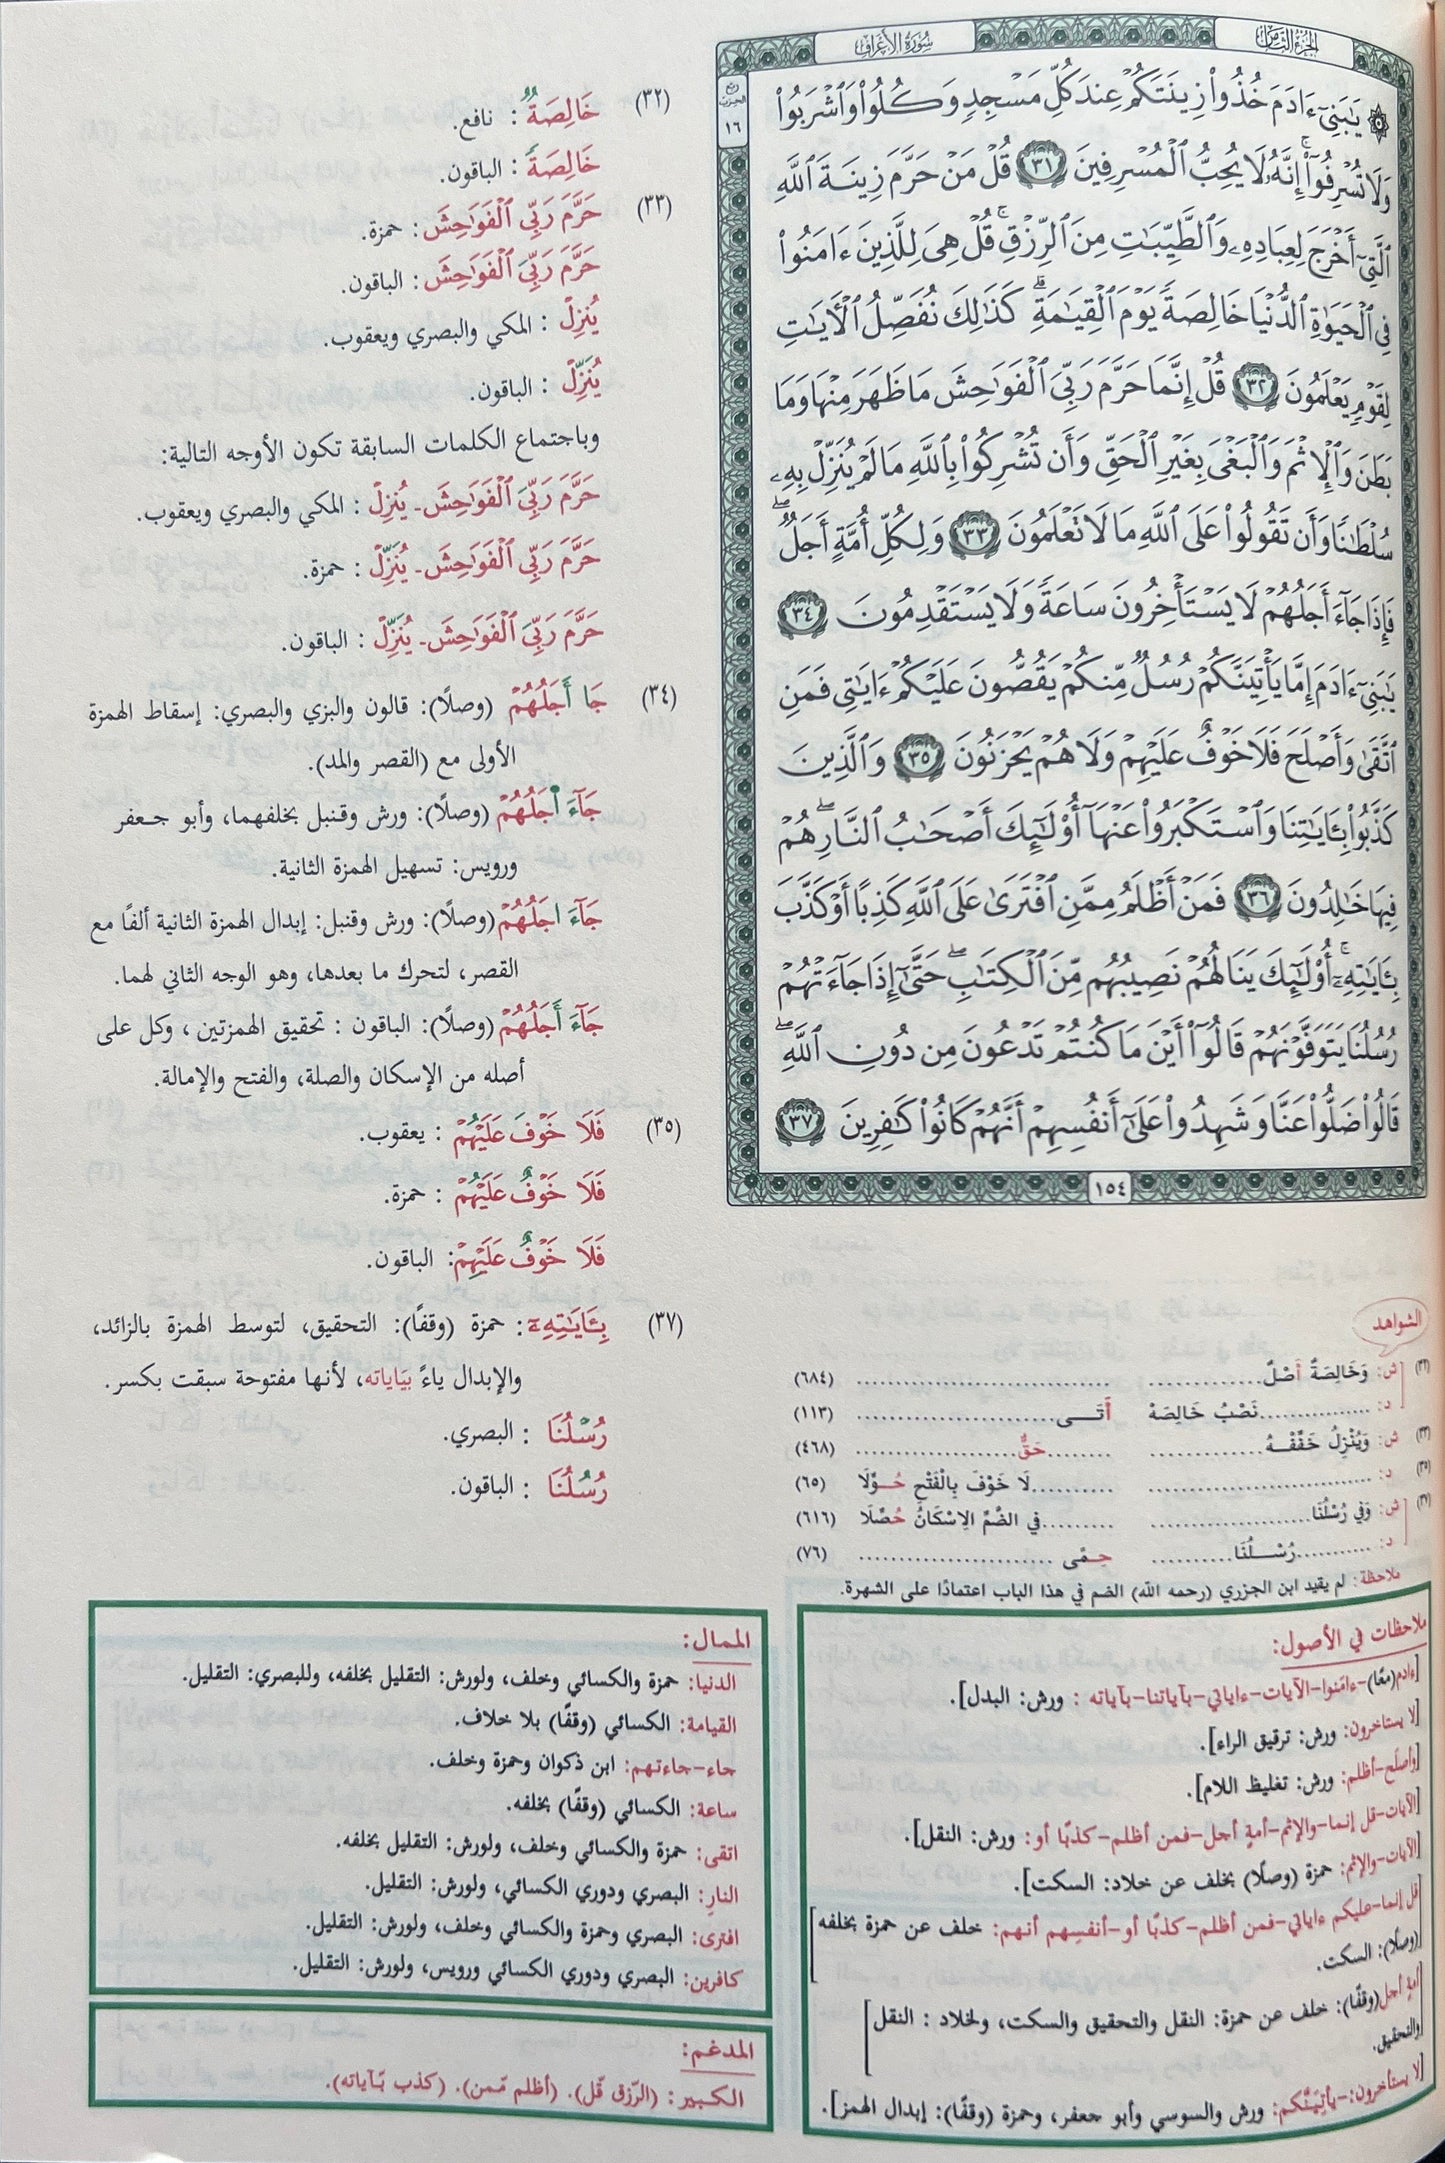 الجزء الثامن
سورة الأعراف
ربع الحزب ١٦
۞ يَٰبَنِيٓ ءَادَمَ خُذُواْ زِينَتَكُمۡ عِندَ كُلِّ مَسۡجِدٖ وَكُلُواْ وَٱشۡرَبُواْ
وَلَا تُسۡرِفُوٓاْۚ إِنَّهُۥ لَا يُحِبُّ ٱلۡمُسۡرِفِينَ ٣١ قُلۡ مَنۡ حَرَّمَ زِينَةَ ٱللَّهِ
ٱلَّتِيٓ أَخۡرَجَ لِعِبَادِهِۦ وَٱلطَّيِّبَٰتِ مِنَ ٱلرِّزۡقِۚ قُلۡ هِيَ لِلَّذِينَ ءَامَنُواْ
فِي ٱلۡحَيَوٰةِ ٱلدُّنۡيَا خَالِصَةٗ يَوۡمَ ٱلۡقِيَٰمَةِۗ كَذَٰلِكَ نُفَصِّلُ ٱلۡأٓيَٰتِ
لِقَوۡمٖ يَعۡلَمُونَ ٣٢ قُلۡ إِنَّمَا حَرَّمَ رَبِّيَ ٱلۡفَوَٰحِشَ مَا ظَهَرَ مِنۡهَا وَمَا
بَطَنَ وَٱلۡإِثۡمَ وَٱلۡبَغۡيَ بِغَيۡرِ ٱلۡحَقِّ وَأَن تُشۡرِكُواْ بِٱللَّهِ مَا لَمۡ يُنَزِّلۡ بِهِۦ
سُلۡطَٰنٗا وَأَن تَقُولُواْ عَلَى ٱللَّهِ مَا لَا تَعۡلَمُونَ ٣٣ وَلِكُلِّ أُمَّةٍ أَجَلٞۖ
فَإِذَا جَآءَ أَجَلُهُمۡ لَا يَسۡتَأۡخِرُونَ سَاعَةٗ وَلَا يَسۡتَقۡدِمُونَ ٣٤
يَٰبَنِيٓ ءَادَمَ إِمَّا يَأۡتِيَنَّكُمۡ رُسُلٞ مِّنكُمۡ يَقُصُّونَ عَلَيۡكُمۡ ءَايَٰتِي فَمَنِ
ٱتَّقَىٰ وَأَصۡلَحَ فَلَا خَوۡفٌ عَلَيۡهِمۡ وَلَا هُمۡ يَحۡزَنُونَ ٣٥ وَٱلَّذِينَ
كَذَّبُواْ بِـَٔايَٰتِنَا وَٱسۡتَكۡبَرُواْ عَنۡهَآ أُوْلَٰٓئِكَ أَصۡحَٰبُ ٱلنَّارِۖ هُمۡ
فِيهَا خَٰلِدُونَ ٣٦ فَمَنۡ أَظۡلَمُ مِمَّنِ ٱفۡتَرَىٰ عَلَى ٱللَّهِ كَذِبًا أَوۡ كَذَّبَ
بِـَٔايَٰتِهِۦٓۚ أُوْلَٰٓئِكَ يَنَالُهُمۡ نَصِيبُهُم مِّنَ ٱلۡكِتَٰبِۖ حَتَّىٰٓ إِذَا جَآءَتۡهُمۡ
رُسُلُنَا يَتَوَفَّوۡنَهُمۡ قَالُوٓاْ أَيۡنَ مَا كُنتُمۡ تَدۡعُونَ مِن دُونِ ٱللَّهِۖ
قَالُواْ ضَلُّواْ عَنَّا وَشَهِدُواْ عَلَىٰٓ أَنفُسِهِمۡ أَنَّهُمۡ كَانُواْ كَٰفِرِينَ ٣٧
١٥٤
(٣٢) خَالِصَةٞ : نافع.
خَالِصَةٗ : الباقون.
(٣٣) حَرَّمَ رَبِّي ٱلۡفَوَٰحِشَ : حمزة.
حَرَّمَ رَبِّيَ ٱلۡفَوَٰحِشَ : الباقون.
يُنزِلۡ : المكي والبصري ويعقوب.
يُنَزِّلۡ : الباقون.
وباجتماع الكلمات السابقة تكون الأوجه التالية:
حَرَّمَ رَبِّيَ ٱلۡفَوَٰحِشَ ـ يُنزِلۡ : المكي والبصري ويعقوب.
حَرَّمَ رَبِّي ٱلۡفَوَٰحِشَ ـ يُنَزِّلۡ : حمزة.
حَرَّمَ رَبِّيَ ٱلۡفَوَٰحِشَ ـ يُنَزِّلۡ : الباقون.
(٣٤) جَا أَجَلُهُمۡ (وصلًا): قالون والبزي والبصري: إسقاط الهمزة
الأولى مع (القصر والمد).
جَآءَ اجَلُهُمۡ (وصلًا): ورش وقنبل بخلفهما، وأبو جعفر
ورويس: تسهيل الهمزة الثانية.
جَآءَ اجَلُهُمۡ (وصلًا): ورش وقنبل: إبدال الهمزة الثانية ألفًا مع
القصر، لتحرك ما بعدها، وهو الوجه الثاني لهما.
جَآءَ أَجَلُهُمۡ (وصلًا): الباقون : تحقيق الهمزتين ، وكل على
أصله من الإسكان والصلة، والفتح والإمالة.
(٣٥) فَلَا خَوۡفَ عَلَيۡهُمۡ : يعقوب.
فَلَا خَوۡفٌ عَلَيۡهُمۡ : حمزة.
فَلَا خَوۡفٌ عَلَيۡهِمۡ: الباقون.
(٣٧) بِـَٔايَٰتِهِۦٓ : حمزة (وقفًا): التحقيق، لتوسط الهمزة بالزائد،
والإبدال ياءً بِيَاياته، لأنها مفتوحة سبقت بكسر.
رُسۡلُنَا : البصري.
رُسُلُنَا : الباقون.
الشواهد
(٣٢) ش: وَخَالِصَةٌ أَصْلٌ.............. .............................. (٦٨٤)
د: ................نَصْبُ خَالِصَهْ أَتَـــى........................ (١١٣)
(٣٣) ش: وَيُنْزِلُ خَفِّفْـهُ.............. .........حَقٌّ.................... (٤٦٨)
(٣٥) د: .............................. ..........لَا خَوْفَ بِالْفَتْحِ حُـوِّلَا (٦٥)
(٣٧) ش: وَفِي رُسْلُنَا.................. .........فِي الضَّمِّ الِاسْكَانُ حُصِّلَا (٦١٦)
د: ...........رُسْــلُنَا........... حِـمًى ........................ (٧٦)
ملاحظة: لم يقيد ابن الجزري (رحمه الله) الضم في هذا الباب اعتمادًا على الشهرة.
ملاحظات في الأصول:
[ءادم(معًا)-ءامنوا-الآيات-ءاياتي-بآياتنا-بآياته : ورش: البدل].
[لا يستاخرون: ورش: ترقيق الراء].
[وأصلح-أظلم: ورش: تغليظ اللام].
[الآيات-قل إنما-والإثم-أمةٍ أجل-فمن أظلم-كذبًا أو: ورش: النقل].
[الآيات-والإثم: حمزة (وصلًا) بخلف عن خلاد: السكت].
[قل إنما-عليكم ءاياتي-فمن أظلم-كذبًا أو-أنفسِهم أنهم: خلف عن حمزة بخلفه
(وصلًا): السكت.]
[أمةٍ أجل(وقفًا): خلف عن حمزة: النقل والتحقيق والسكت، ولخلاد : النقل
والتحقيق.]
[لا يستاخرون:-يأتِيَنَّكم: ورش والسوسي وأبو جعفر، وحمزة (وقفًا): إبدال الهمز].
الممال:
الدنيا: حمزة والكسائي وخلف، ولورش: التقليل بخلفه، وللبصري: التقليل.
القيامة: الكسائي (وقفًا) بلا خلاف.
جاء-جاءتهم: ابن ذكوان وحمزة وخلف.
ساعة: الكسائي (وقفًا) بخلفه.
اتقى: حمزة والكسائي وخلف، ولورش: التقليل بخلفه.
النارِ: البصري ودوري الكسائي، ولورش: التقليل.
افترى: البصري وحمزة والكسائي وخلف، ولورش: التقليل.
كافرين: البصري ودوري الكسائي ورويس، ولورش: التقليل.
المدغم:
الكبير: (الرّزق قّل). (أظلم مّمن). (كذب بّآياته).